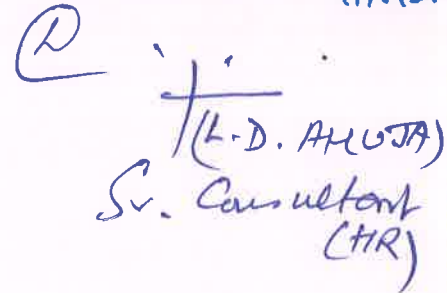 (L.D. AHUJA)
Sr. Consultant
(HR)